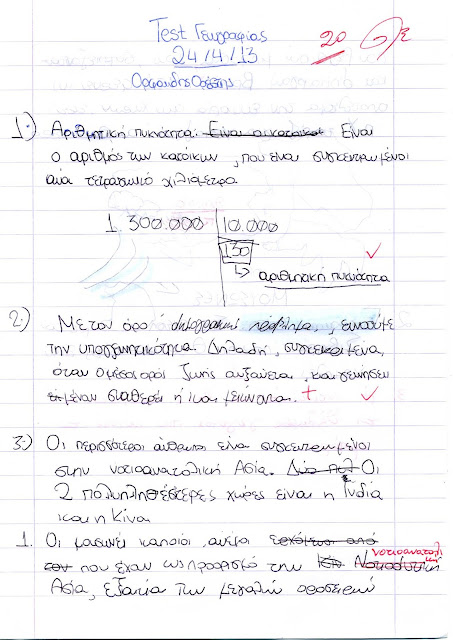 Test Γεωγραφίας
24/4/13
20
Ορφανίδης Ορέστης
1.) Αριθμητική πυκνότητα: Είναι οι κατοικοι Είναι
ο αριθμός των κατοίκων, που είναι συγκεντρωμένοι
ανα τετραγωνικό χιλιόμετρο.
1.300.000 | 10.000
130
↳ αριθμητική πυκνότητα
2.) Με τον όρο δημογραφικό πρόβλημα, εννοούμε
την υπογεννητικότητα. Δηλαδή, συγκεκριμένα,
όταν ο μέσος όρος ζωής αυξάνεται, και γεννήσεις
σταθερές ή και μειώνονται. +
3.) Οι περισσότεροι άνθρωποι είναι συγκεντρωμένοι
στην νοτιοανατολική Ασία. Δύο πολ Οι
2 πολυπληθέστερες χώρες είναι η Ινδία
και η Κίνα
νοτιοανατολι
1. Οι μασώνες καποιοι, ανεμοι ερχόμενοι από
τον που έχουν ως προορισμό την Νοτιοδυτική κή
Ασία, εξαιτία των μεγάλων οροσειρών